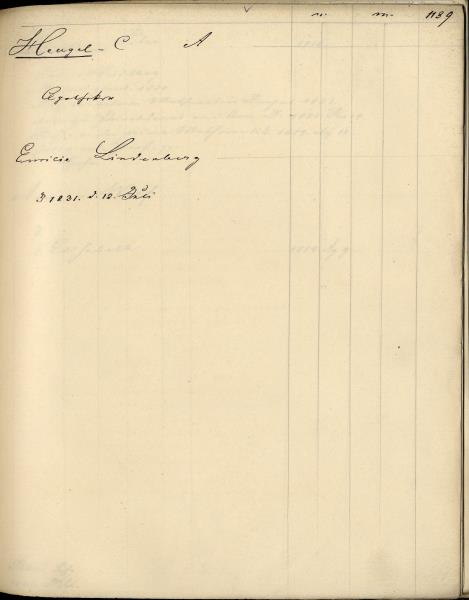 n. m. 1139
Hengel - C A
Apotheker
Emicie Lindenberg
d. 10. Juli